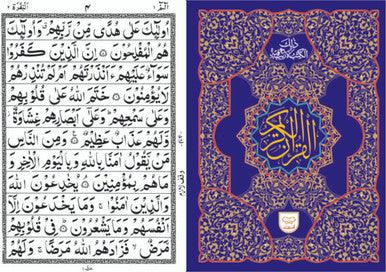 البقرة ٢
٤
الٓمّٓ ١
اُولٰٓئِكَ عَلٰى هُدًى مِّنْ رَّبِّهِمْ وَاُولٰٓئِكَ
هُمُ الْمُفْلِحُوْنَ اِنَّ الَّذِيْنَ كَفَرُوْا
سَوَآءٌ عَلَيْهِمْ ءَاَنْذَرْتَهُمْ اَمْ لَمْ تُنْذِرْهُمْ
لَا يُؤْمِنُوْنَ خَتَمَ اللّٰهُ عَلٰى قُلُوْبِهِمْ
وَعَلٰى سَمْعِهِمْ وَعَلٰٓى اَبْصَارِهِمْ غِشَاوَةٌ
وَّلَهُمْ عَذَابٌ عَظِيْمٌ وَمِنَ النَّاسِ
مَنْ يَّقُوْلُ اٰمَنَّا بِاللّٰهِ وَبِالْيَوْمِ الْاٰخِرِ وَ
مَا هُمْ بِمُؤْمِنِيْنَ يُخٰدِعُوْنَ اللّٰهَ
وَالَّذِيْنَ اٰمَنُوْا وَمَا يَخْدَعُوْنَ اِلَّآ
اَنْفُسَهُمْ وَمَا يَشْعُرُوْنَ فِيْ قُلُوْبِهِمْ
مَّرَضٌ فَزَادَهُمُ اللّٰهُ مَرَضًا وَلَهُمْ
ذٰلك
القرآن الكريم